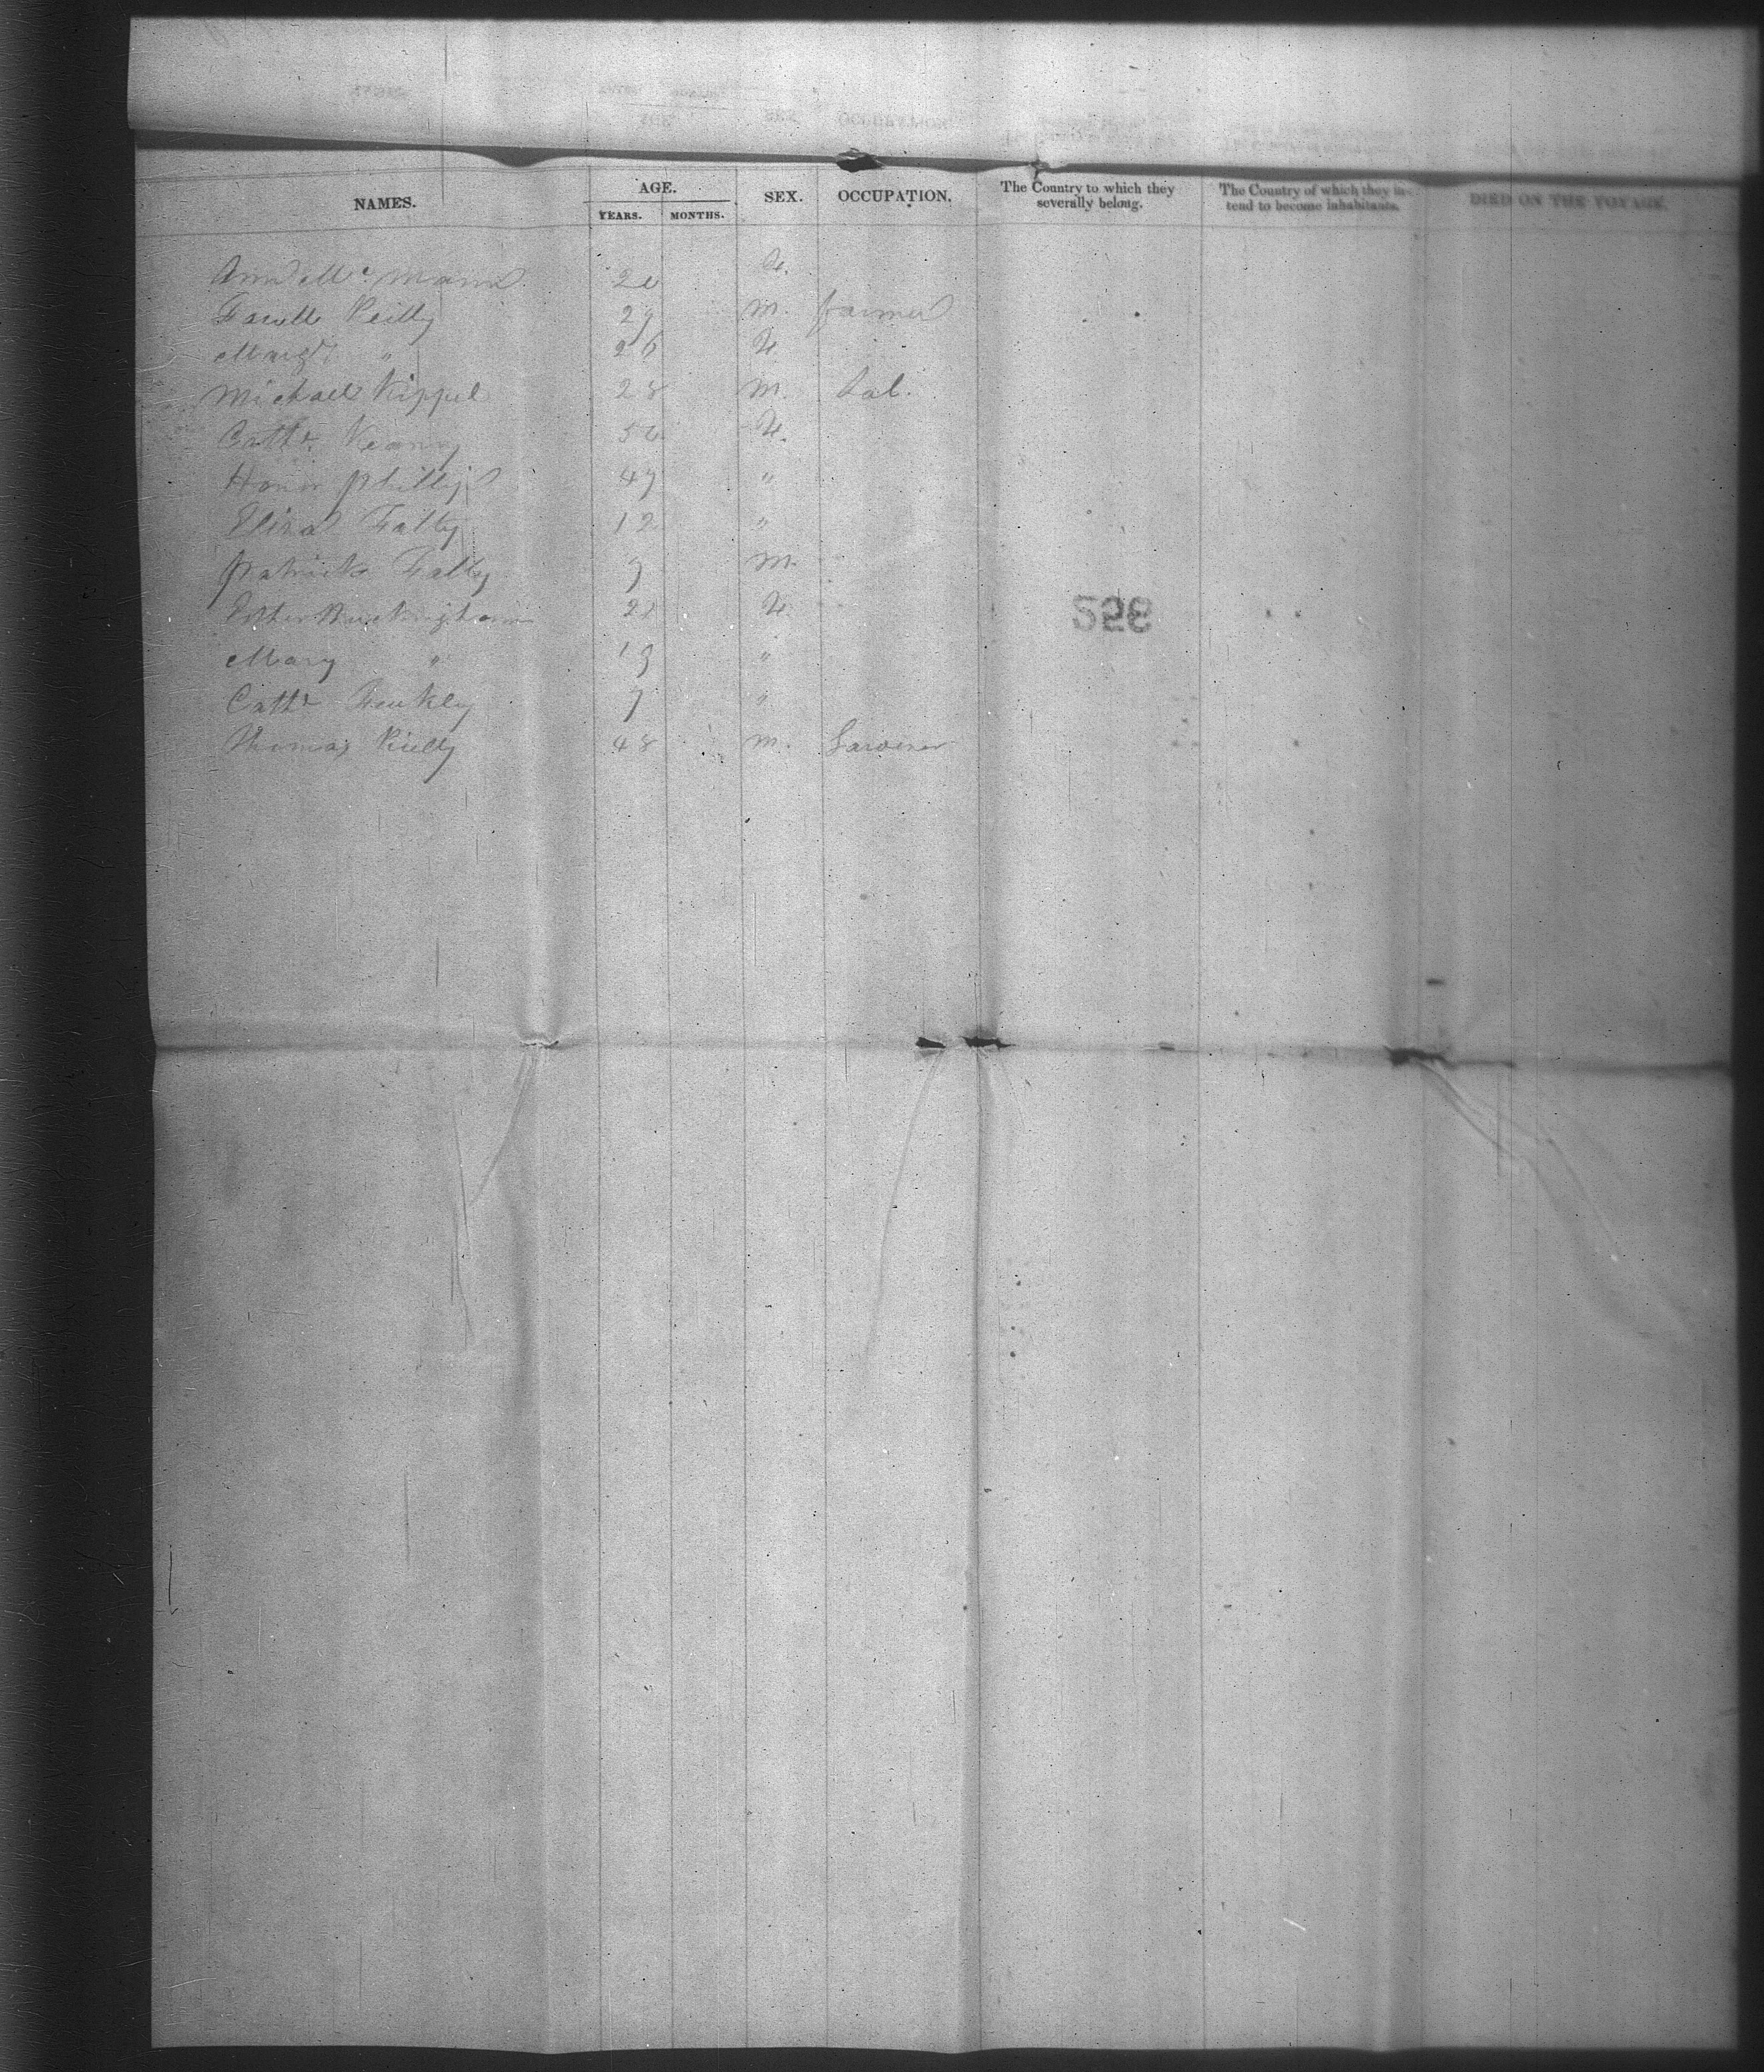 NAMES. AGE. YEARS. MONTHS. SEX. OCCUPATION. The Country to which they severally belong. The Country of which they intend to become inhabitants. DIED ON THE VOYAGE.
Ann Mc 20 F.
Farrell Reilly 29 M. Farmer
Margt " 26 F.
Michael Kippel 28 M. Lab.
Cathe. Keanny F.
Honor Phillips 49 "
Eliza Fally 12 "
Patrick Fally 9 M.
Esther Buckingham F.
Mary " 19 "
Cathe 7 "
Thomas Rielly 48 M. Gardener
258